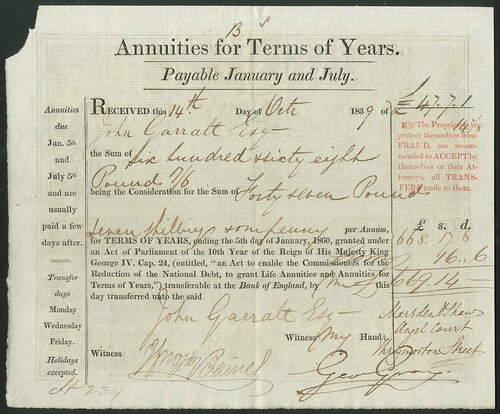 B s
Annuities for Terms of Years.
Payable January and July.
Annuities
due
Jan. 5th
and
July 5th
and
are
usually
paid a few
days after.
Transfer
days
Monday
Wednesday
Friday.
Holidays
excepted.
RECEIVED this 14th Day of Octr 1839 of
£47.7.1
John Garratt Esq
the Sum of Six hundred sixty eight
Pounds 17/6
being the Consideration for the Sum of Forty seven Pounds
seven shillings & one penny per Annum,
for TERMS OF YEARS, ending the 5th day of January, 1860, granted under
an Act of Parliament of the 10th Year of the Reign of His Majesty King
George IV. Cap. 24, (entitled, "an Act to enable the Commissioners for the
Reduction of the National Debt, to grant Life Annuities and Annuities for
Terms of Years,") transferable at the Bank of England, by me this
day transferred unto the said
John Garratt Esq
Witness my Hand
Witness
Geo Gray
The Proprietors to
protect themselves from
FRAUD, are recom-
mended to ACCEPT by
themselves or their At-
torneys, all TRANS-
FERS made to them.
£ s. d.
668. 17. 6
16..6
669.14
Marsden & Shaw
Angel Court
Throgmorton Street
234